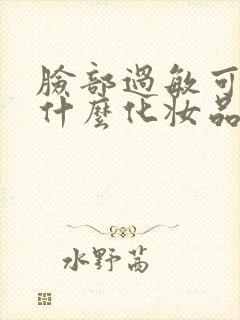 臉部過敏可
什麼化妝品
水野茜